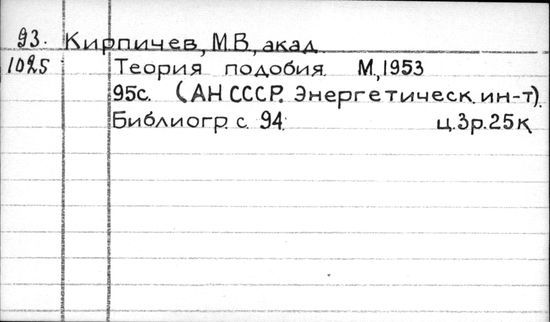 93. Кирпичев, М.В., акад.
1025 Теория подобия. М., 1953
95с. (АН СССР. Энергетическ. ин-т).
Библиогр. с. 94. ц. 3р. 25к